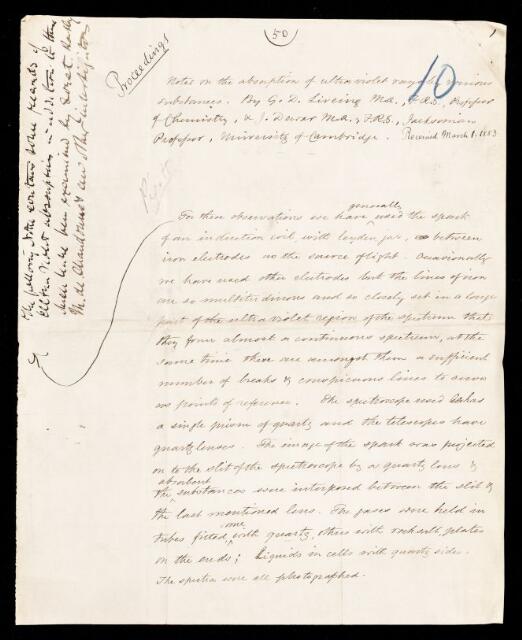 50
Proceedings
10
Notes on the absorption of ultra violet rays by various
substances. By G. D. Liveing M.A., F.R.S., Professor
of Chemistry, & J. Dewar M.A., F.R.S., Jacksonian
Professor, University of Cambridge. Received March 1. 1883
The following notes contain some records of
ultra violet absorption in addition to those
such have been examined by Soret, Hartley
M. de Chardonnet & other investigators
For these observations we have generally used the spark
of an induction coil, with leyden jar, between
iron electrodes as the source of light. Occasionally
we have used other electrodes but the lines of iron
are so multitudinous and so closely set in a large
part of the ultra violet region of the spectrum that
they form almost a continuous spectrum, at the
same time there are amongst them a sufficient
number of breaks & conspicuous lines to serve
as points of reference. The spectroscope used has
a single prism of quartz and the telescopes have
quartz lenses. The image of the spark was projected
on to the slit of the spectroscope by a quartz lens &
the absorbent substances were interposed between the slit &
the last mentioned lens. The gases were held in
tubes fitted, some with quartz, others with rock salt plates
on the ends; Liquids in cells with quartz sides.
The spectra were all photographed.